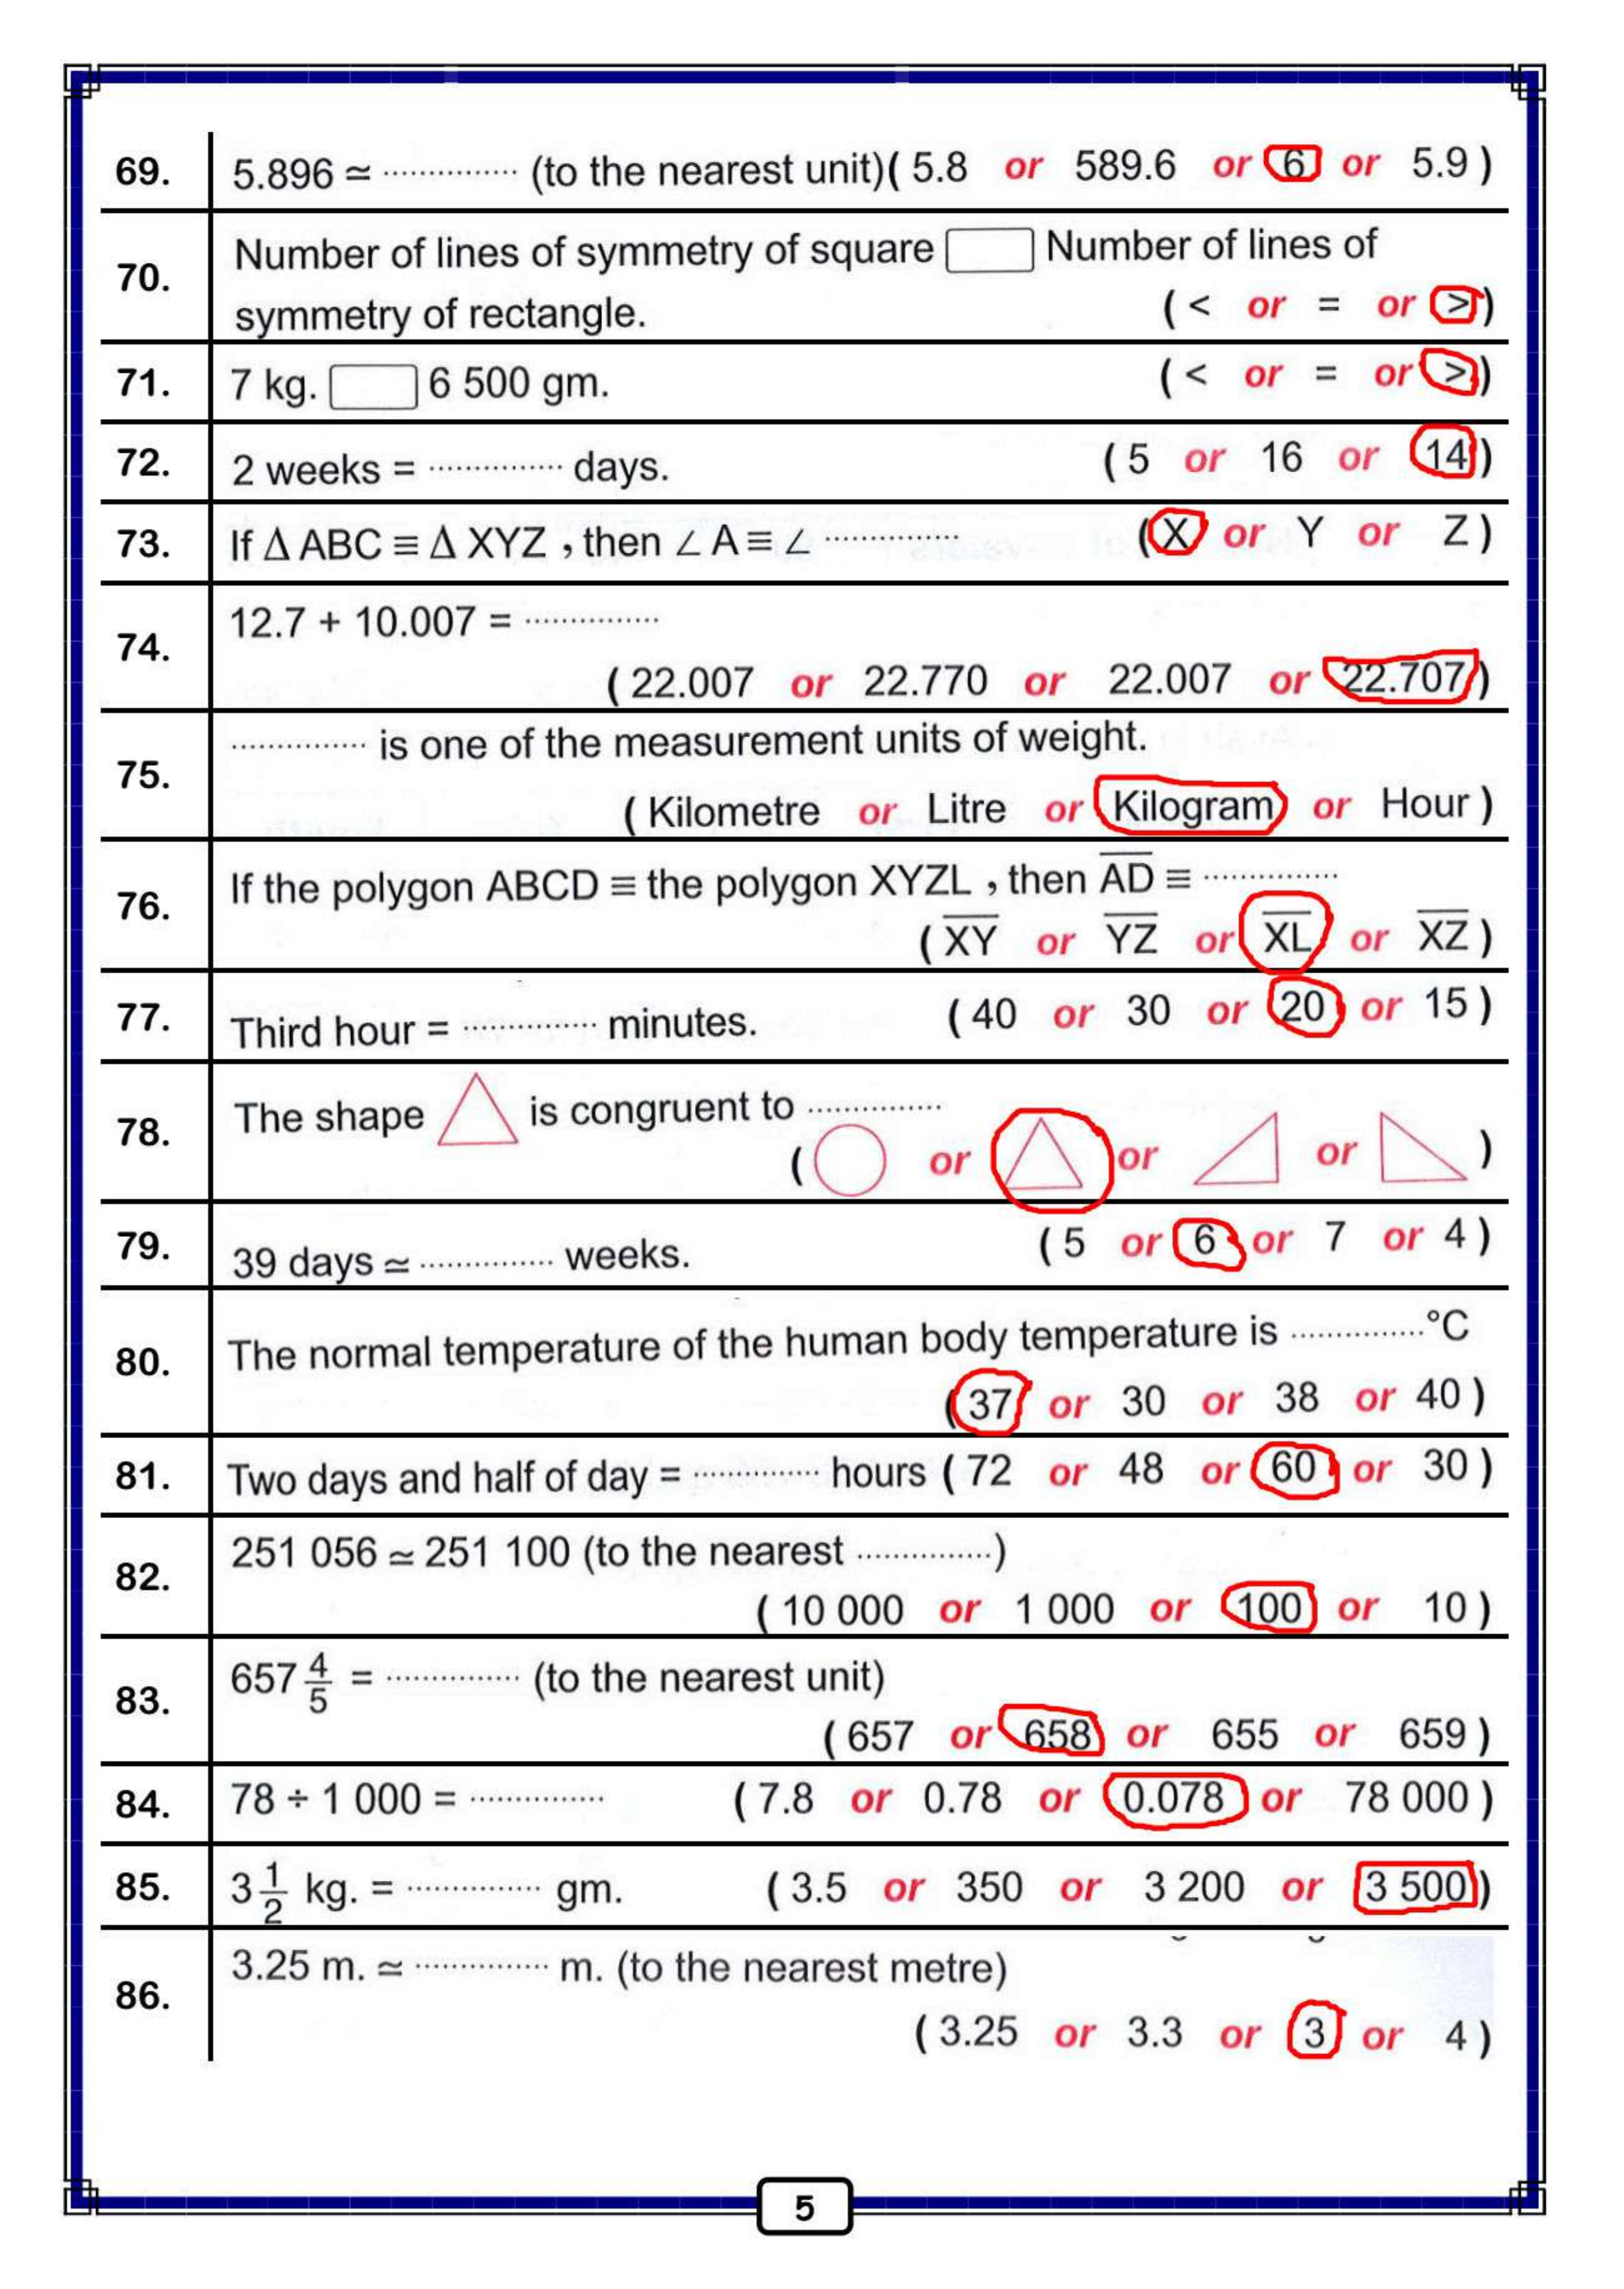 69. 5.896 ≃ ............... (to the nearest unit)( 5.8 or 589.6 or 6 or 5.9 )
70. Number of lines of symmetry of square Number of lines of
symmetry of rectangle. ( < or = or > )
71. 7 kg. 6 500 gm. ( < or = or > )
72. 2 weeks = ............... days. ( 5 or 16 or 14 )
73. If Δ ABC ≡ Δ XYZ , then ∠ A ≡ ∠ ............... ( X or Y or Z )
74. 12.7 + 10.007 = ...............
( 22.007 or 22.770 or 22.007 or 22.707 )
75. ............... is one of the measurement units of weight.
( Kilometre or Litre or Kilogram or Hour )
76. If the polygon ABCD ≡ the polygon XYZL , then A̅D̅ ≡ ...............
( X̅Y̅ or Y̅Z̅ or X̅L̅ or X̅Z̅ )
77. Third hour = ............... minutes. ( 40 or 30 or 20 or 15 )
78. The shape is congruent to ...............
( or or or )
79. 39 days ≃ ............... weeks. ( 5 or 6 or 7 or 4 )
80. The normal temperature of the human body temperature is ...............°C
( 37 or 30 or 38 or 40 )
81. Two days and half of day = ............... hours ( 72 or 48 or 60 or 30 )
82. 251 056 ≃ 251 100 (to the nearest ...............)
( 10 000 or 1 000 or 100 or 10 )
83. 657 4/5 = ............... (to the nearest unit)
( 657 or 658 or 655 or 659 )
84. 78 ÷ 1 000 = ............... ( 7.8 or 0.78 or 0.078 or 78 000 )
85. 3 1/2 kg. = ............... gm. ( 3.5 or 350 or 3 200 or 3 500 )
86. 3.25 m. ≃ ............... m. (to the nearest metre)
( 3.25 or 3.3 or 3 or 4 )
5